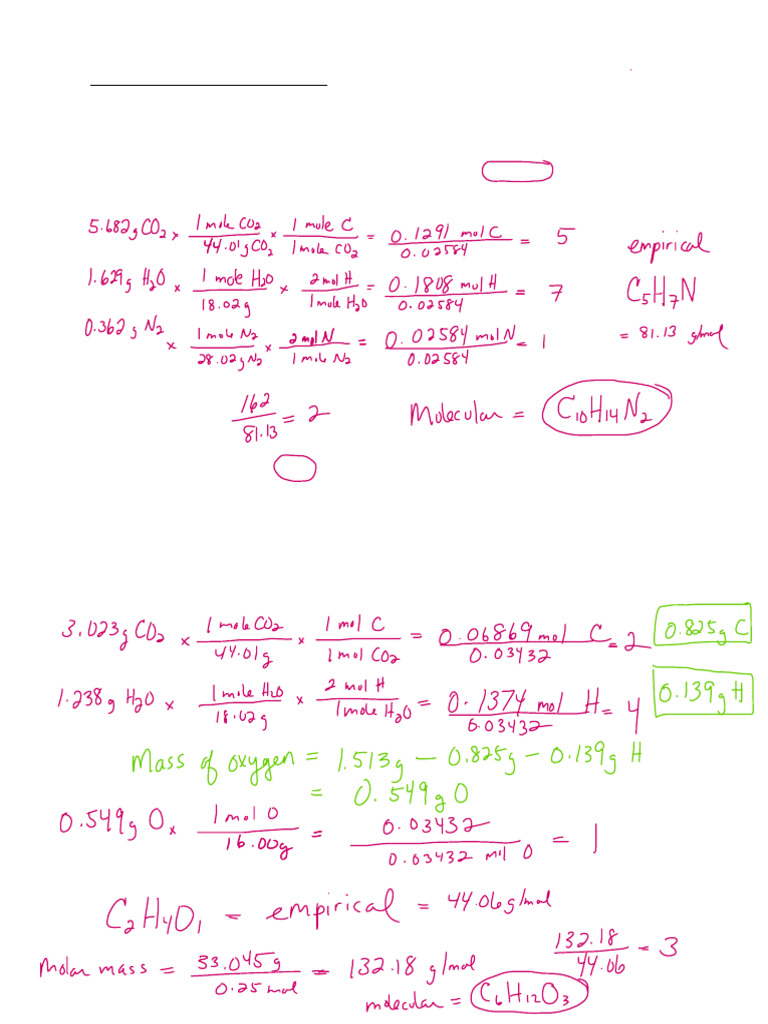 5.682g CO2 x 1 mole CO2 / 44.01g CO2 x 1 mole C / 1 mole CO2 = 0.1291 mol C / 0.02584 = 5 empirical
1.629g H2O x 1 mole H2O / 18.02g x 2 mol H / 1 mole H2O = 0.1808 mol H / 0.02584 = 7 C5H7N
0.362g N2 x 1 mole N2 / 28.02g N2 x 2 mol N / 1 mole N2 = 0.02584 mol N / 0.02584 = 1 = 81.13 g/mol
162 / 81.13 = 2 Molecular = C10H14N2
3.023g CO2 x 1 mole CO2 / 44.01g x 1 mol C / 1 mol CO2 = 0.06869 mol C / 0.03432 = 2 0.825g C
1.238g H2O x 1 mole H2O / 18.02g x 2 mol H / 1 mole H2O = 0.1374 mol H / 0.03432 = 4 0.139g H
Mass of oxygen = 1.513g - 0.825g - 0.139g H
= 0.549g O
0.549g O x 1 mol O / 16.00g = 0.03432 / 0.03432 mol O = 1
C2H4O1 = empirical = 44.06g/mol
Molar mass = 33.045g / 0.25 mol = 132.18 g/mol 132.18 / 44.06 = 3
molecular = C6H12O3